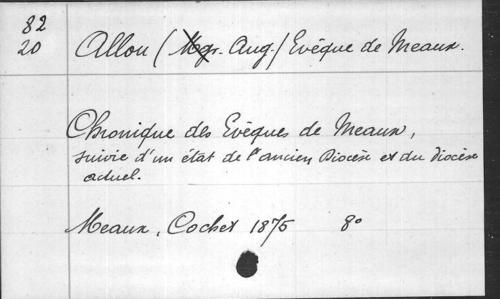 82
20
Allou (Mgr. Aug.) Evêque de Meaux.
Chronique des Evêques de Meaux,
suivie d'un état de l'ancien Diocèse et du diocèse
actuel.
Meaux, Cochet 1875 8°